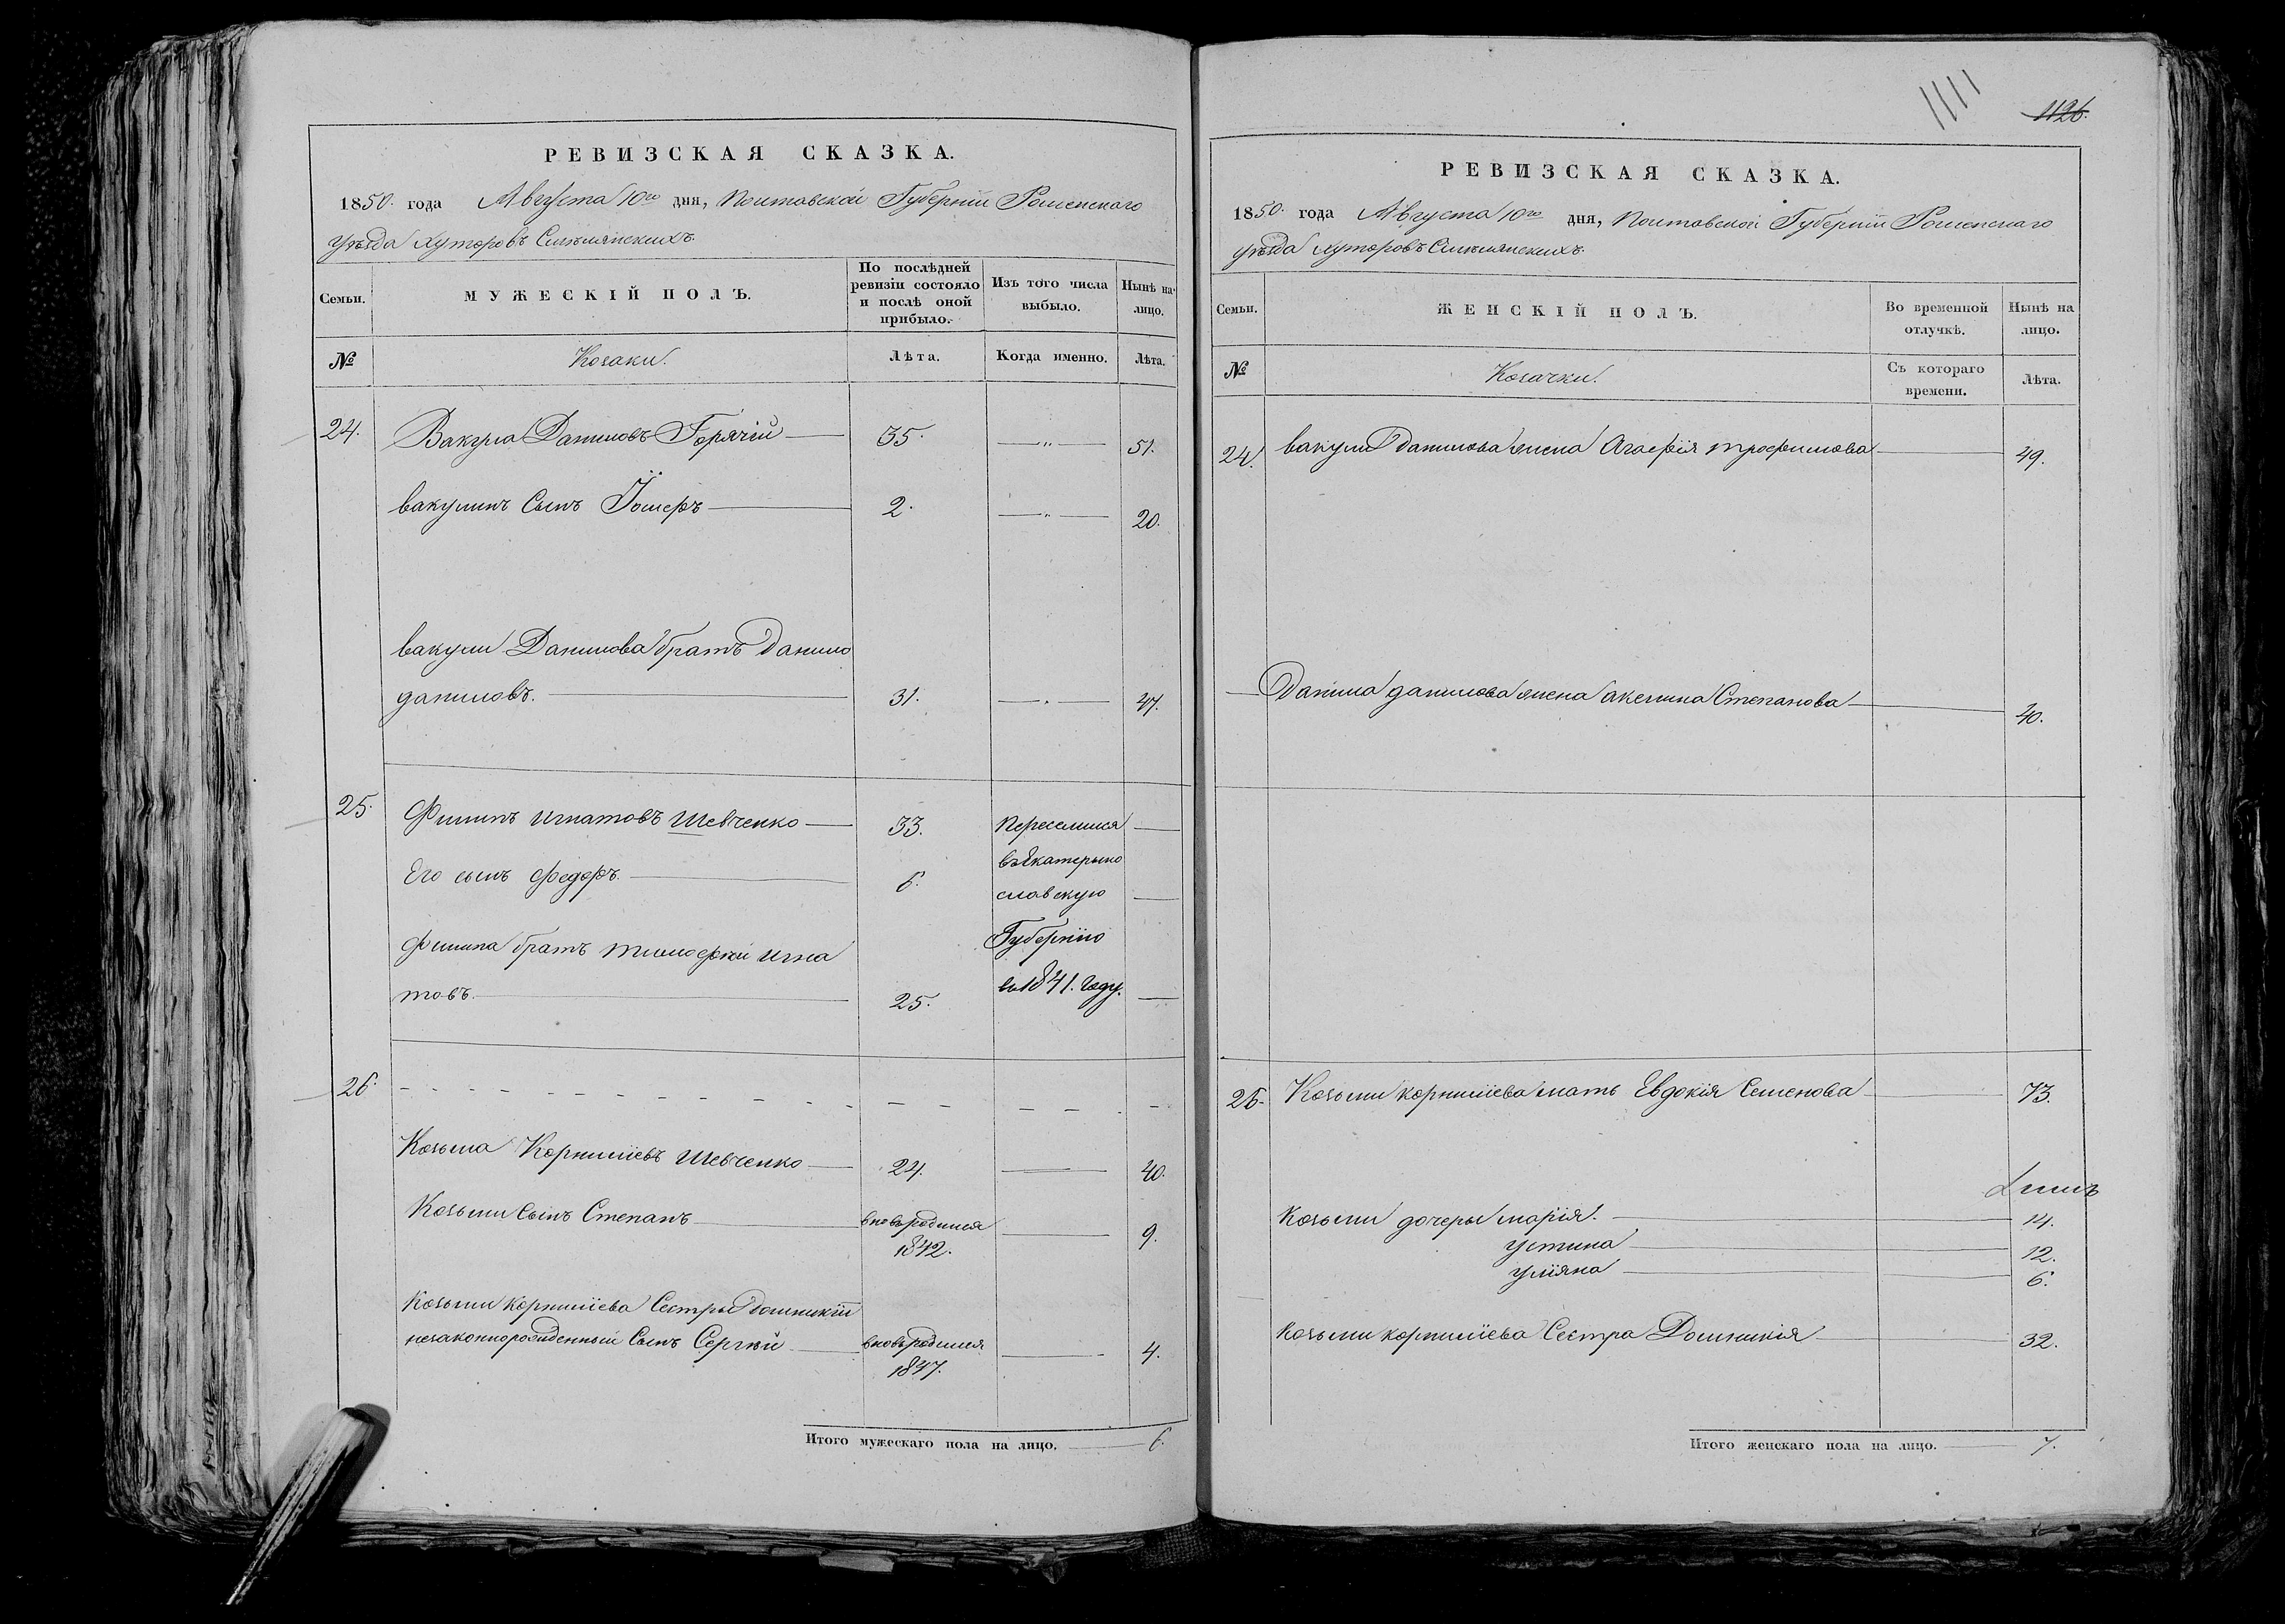 РЕВИЗСКАЯ СКАЗКА.
1850. года Августа 10го дня, Полтавской Губерніи Роменскаго
уѣзда хуторовъ
Семьи.
МУЖЕСКІЙ ПОЛЪ.
По послѣдней ревизіи состояло и послѣ оной прибыло.
Изъ того числа выбыло.
Нынѣ на лицо.
№
Козаки.
Лѣта.
Когда именно.
Лѣта.
24. Вакула Даниловъ Горячій 35. 51.
вакулинъ Сынъ 2. 20.
вакулы Данилова братъ Данило
даниловъ. 31. 47.
25. Филипъ игнатовъ Шевченко 33. Переселился
Его сынъ федоръ. 6. въ Екатерино
славскую
Филипа братъ тимофей игна Губернію
товъ. 25. въ 1841. году.
26.
Козьма Корниліевъ Шевченко 24. 40.
Козьмы Сынъ Степанъ вновьродился 9.
1842.
Козьмы корниліева Сестры домникіи
незаконнорожденный Сынъ Сергѣй вновьродился 4.
1847.
Итого мужескаго пола на лицо. 6.
1111
1126.
РЕВИЗСКАЯ СКАЗКА.
1850. года Августа 10го дня, Полтавской Губерніи Роменскаго
уѣзда хуторовъ
Семьи.
ЖЕНСКІЙ ПОЛЪ.
Во временной отлучкѣ.
Нынѣ на лицо.
№
Козачки.
Съ котораго времени.
Лѣта.
24. вакулы Данилова жена Агафія трофимова 49.
Данила данилова жена акелина Степанова 40.
26. Козьмы корниліева мать Евдокія Семенова 73.
Козьмы дочеры марія. 14.
устина 12.
уліяна 6.
Козьмы корниліева Сестра Домникія 32.
Итого женскаго пола на лицо. 7.